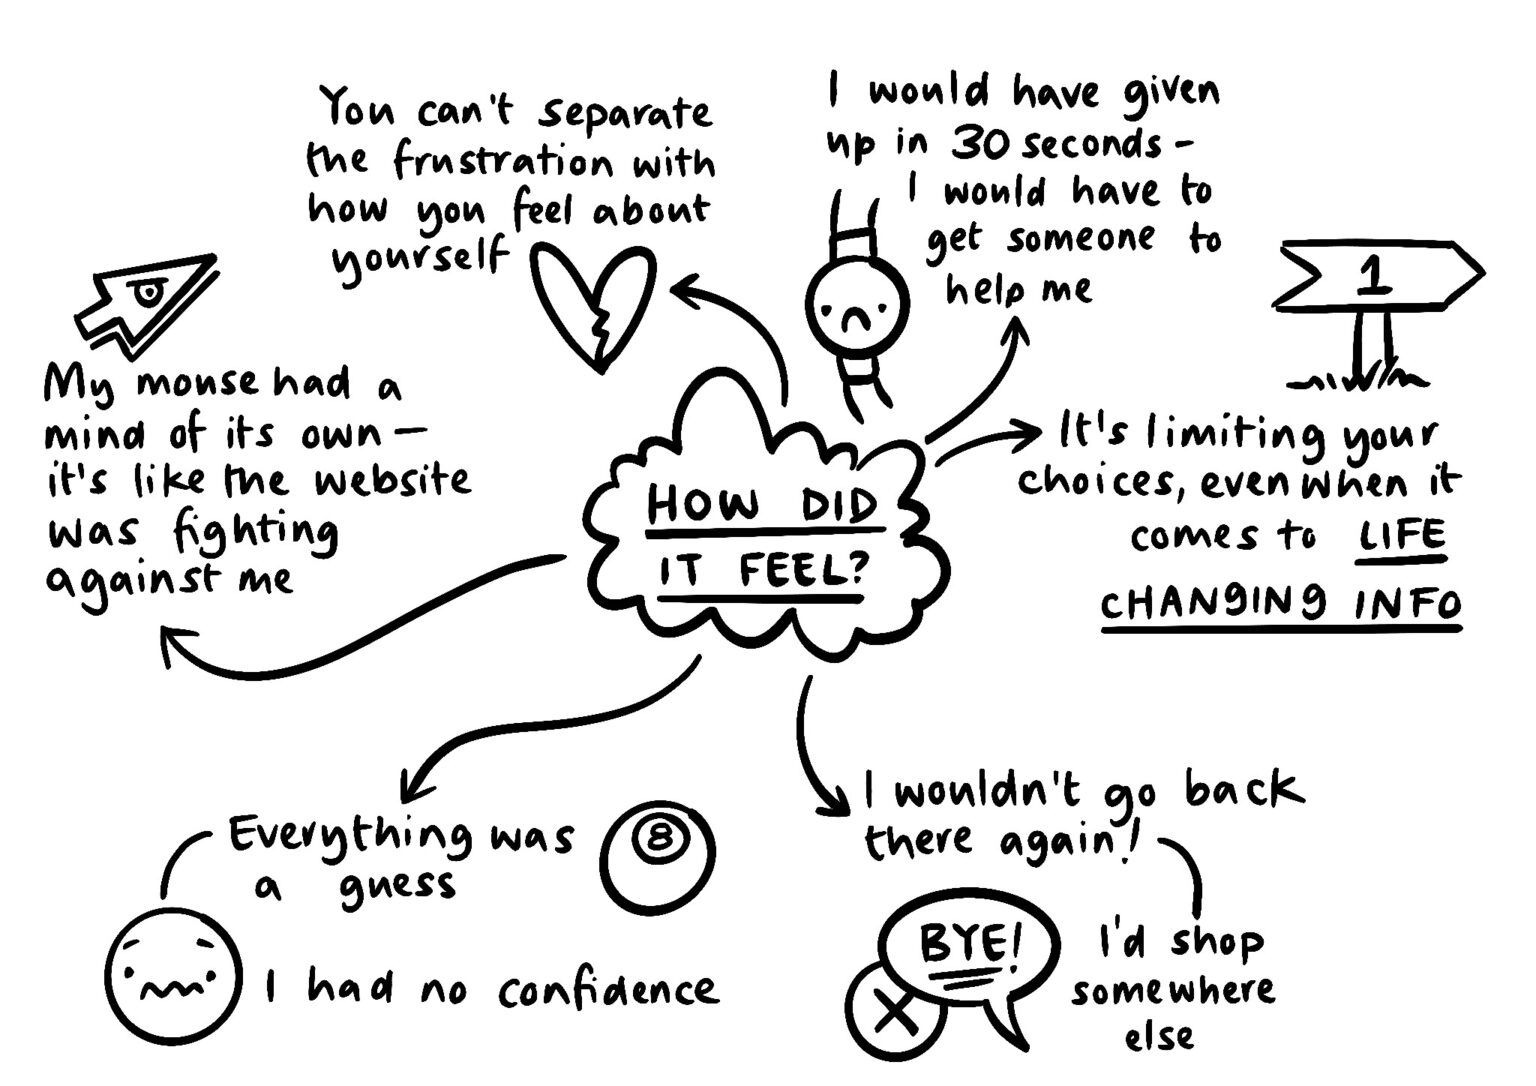 You can't separate
the frustration with
how you feel about
yourself
I would have given
up in 30 seconds -
I would have to
get someone to
help me
1
My mouse had a
mind of its own —
it's like the website
was fighting
against me
HOW DID
IT FEEL?
It's limiting your
choices, even when it
comes to LIFE
CHANGING INFO
Everything was
a guess
8
I had no confidence
I wouldn't go back
there again!
BYE!
X
I'd shop
somewhere
else